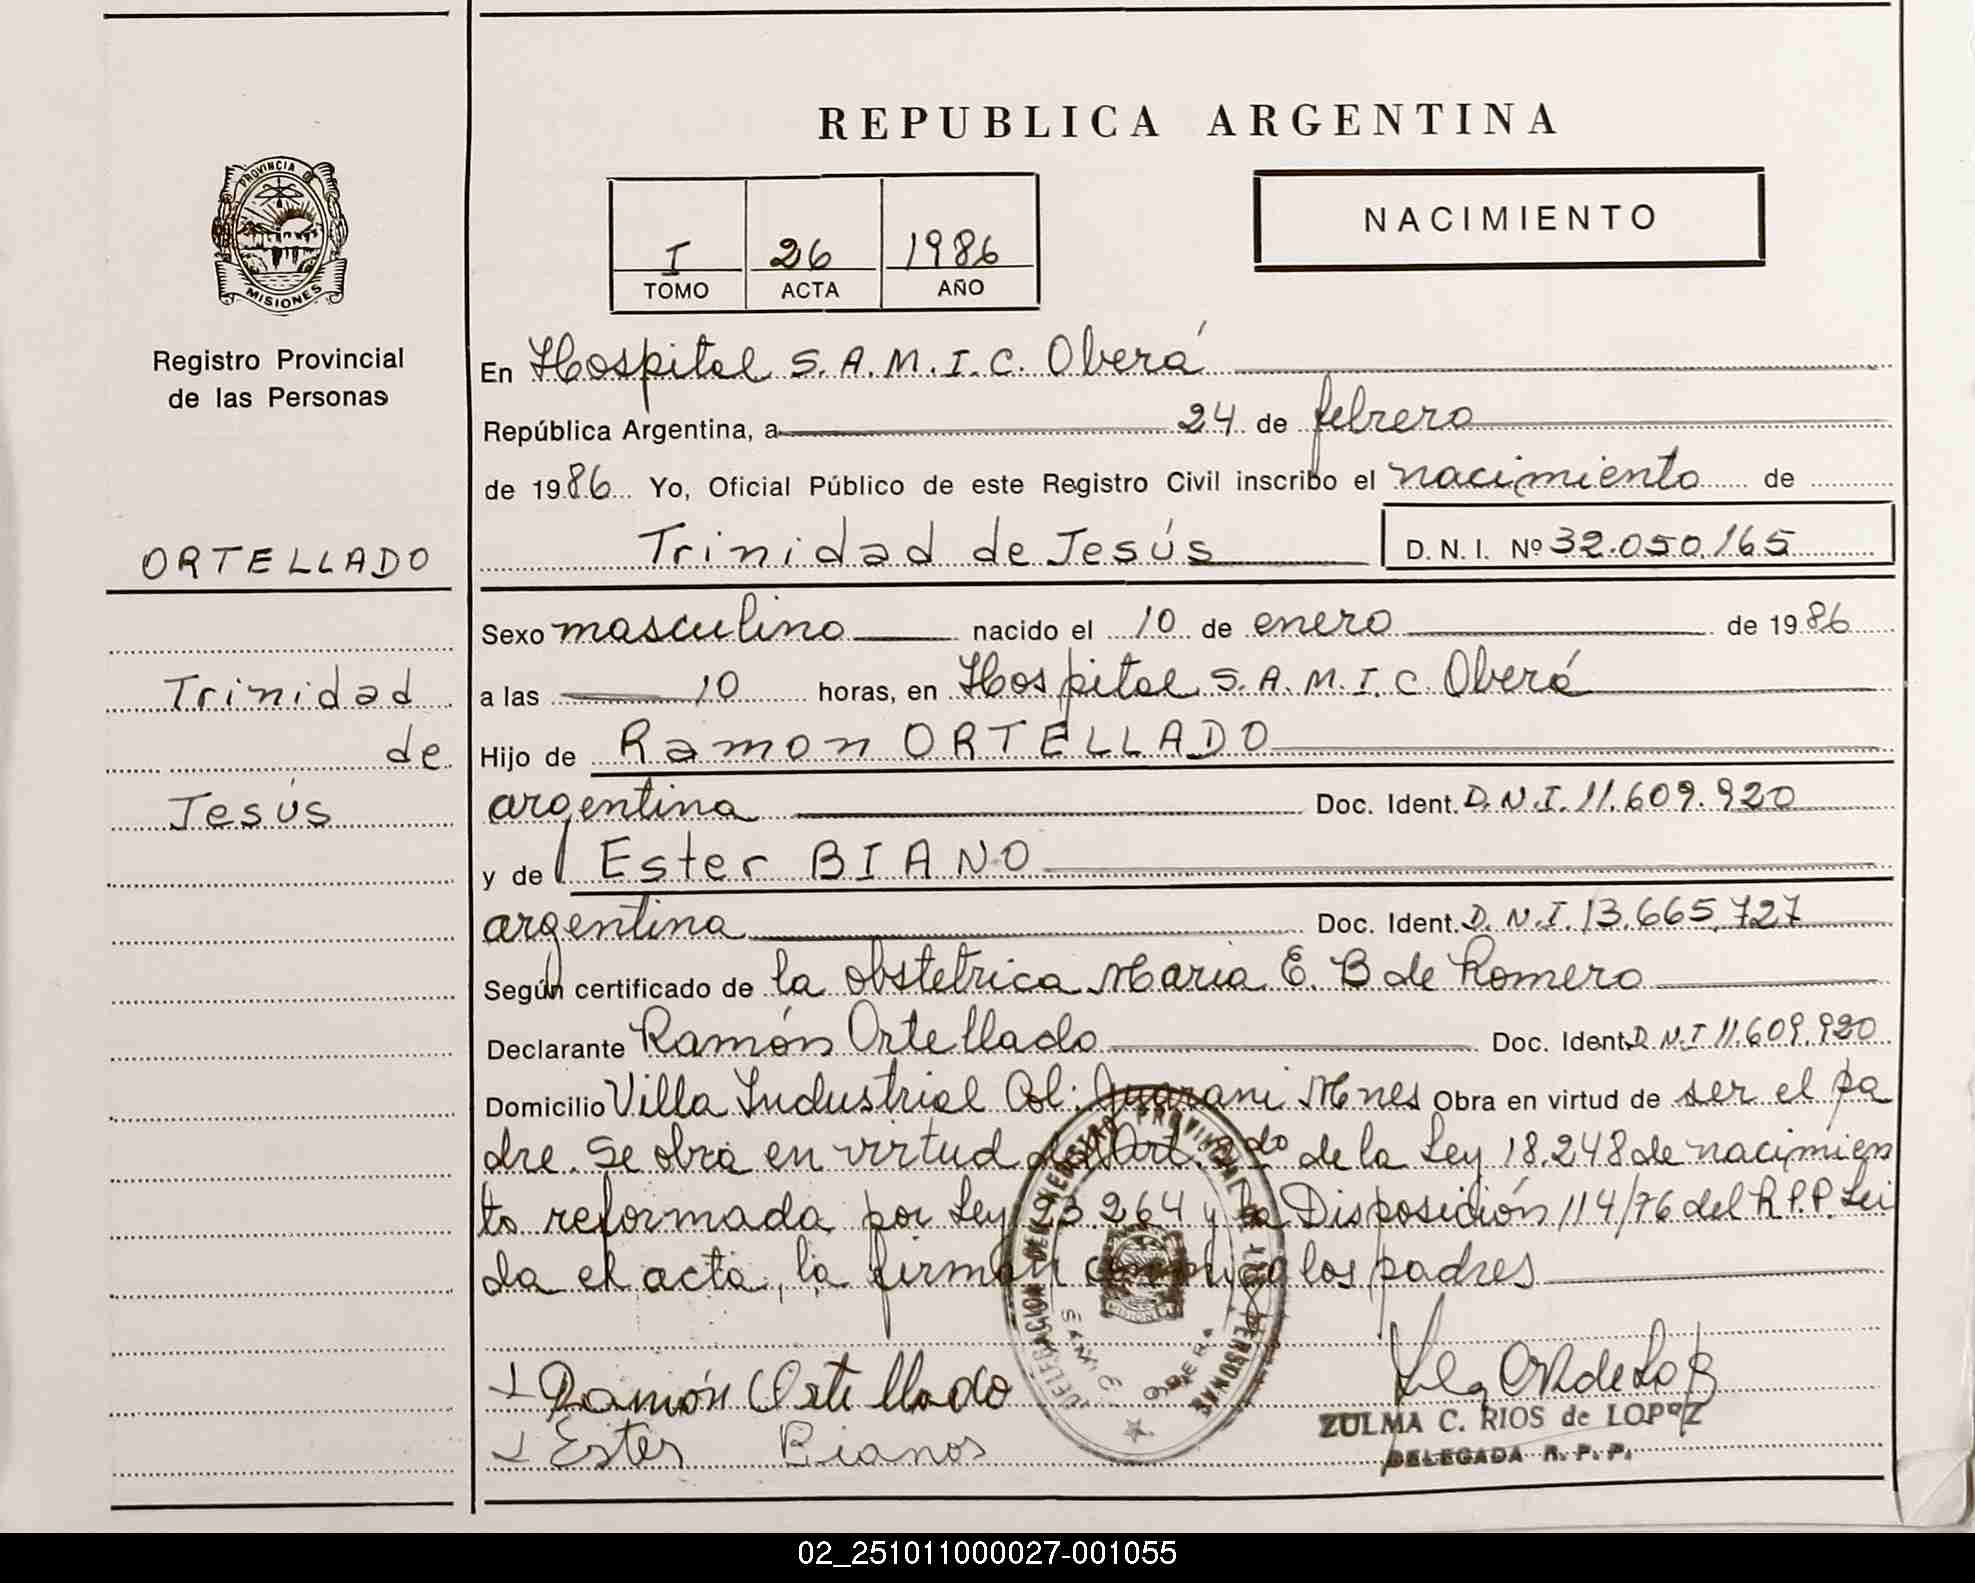 REPUBLICA ARGENTINA
PROVINCIA DE
MISIONES
Registro Provincial
de las Personas
I 26 1986
TOMO ACTA AÑO
NACIMIENTO
En Hospital S.A.M.I.C. Oberá
República Argentina, a 24 de febrero
de 1986 Yo, Oficial Público de este Registro Civil inscribo el nacimiento de
Trinidad de Jesús D. N. I. Nº 32.050.165
ORTELLADO
Trinidad
de
Jesús
Sexo masculino nacido el 10 de enero de 1986
a las 10 horas, en Hospital S.A.M.I.C Oberá
Hijo de Ramon ORTELLADO
argentina Doc. Ident. D.N.I. 11.609.920
y de Ester BIANO
argentina Doc. Ident. D.N.I. 13.665.727
Según certificado de la obstetrica Maria E. B de Romero
Declarante Ramón Ortellado Doc. Ident. D.N.I 11.609.920
Domicilio Villa Industrial Col: Guarani Mnes Obra en virtud de ser el pa
dre. Se obra en virtud del Art. 2do de la Ley 18.248 de nacimien
to reformada por Ley 23.264 y la Disposición 114/76 del R.P.P. Lei
da el acta, la firman conmigo los padres
DELEGACION DEL REGISTRO PROVINCIAL DE LAS PERSONAS
OBERA
Ramón Ortellado
Ester Bianos
ZULMA C. RIOS de LOPEZ
DELEGADA R. P. P.
02_251011000027-001055